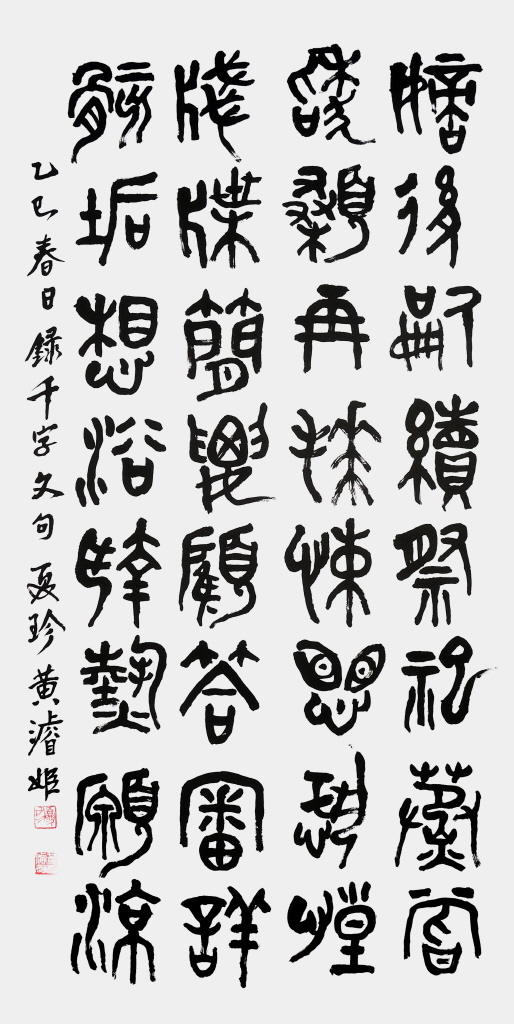 嫡後嗣續祭祀蒸嘗
稽顙再拜悚懼恐惶
牋牒簡要顧答審詳
骸垢想浴執熱願涼
乙巳春日録千字文句 聂珍 黄濬姬